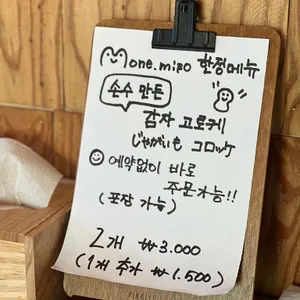 one.mipo 한정메뉴
손수 만든
감자 고로케
じゃがいも コロッケ
예약없이 바로
주문가능!!
(포장 가능)
2개 ₩3.000
(1개 추가 ₩1.500)